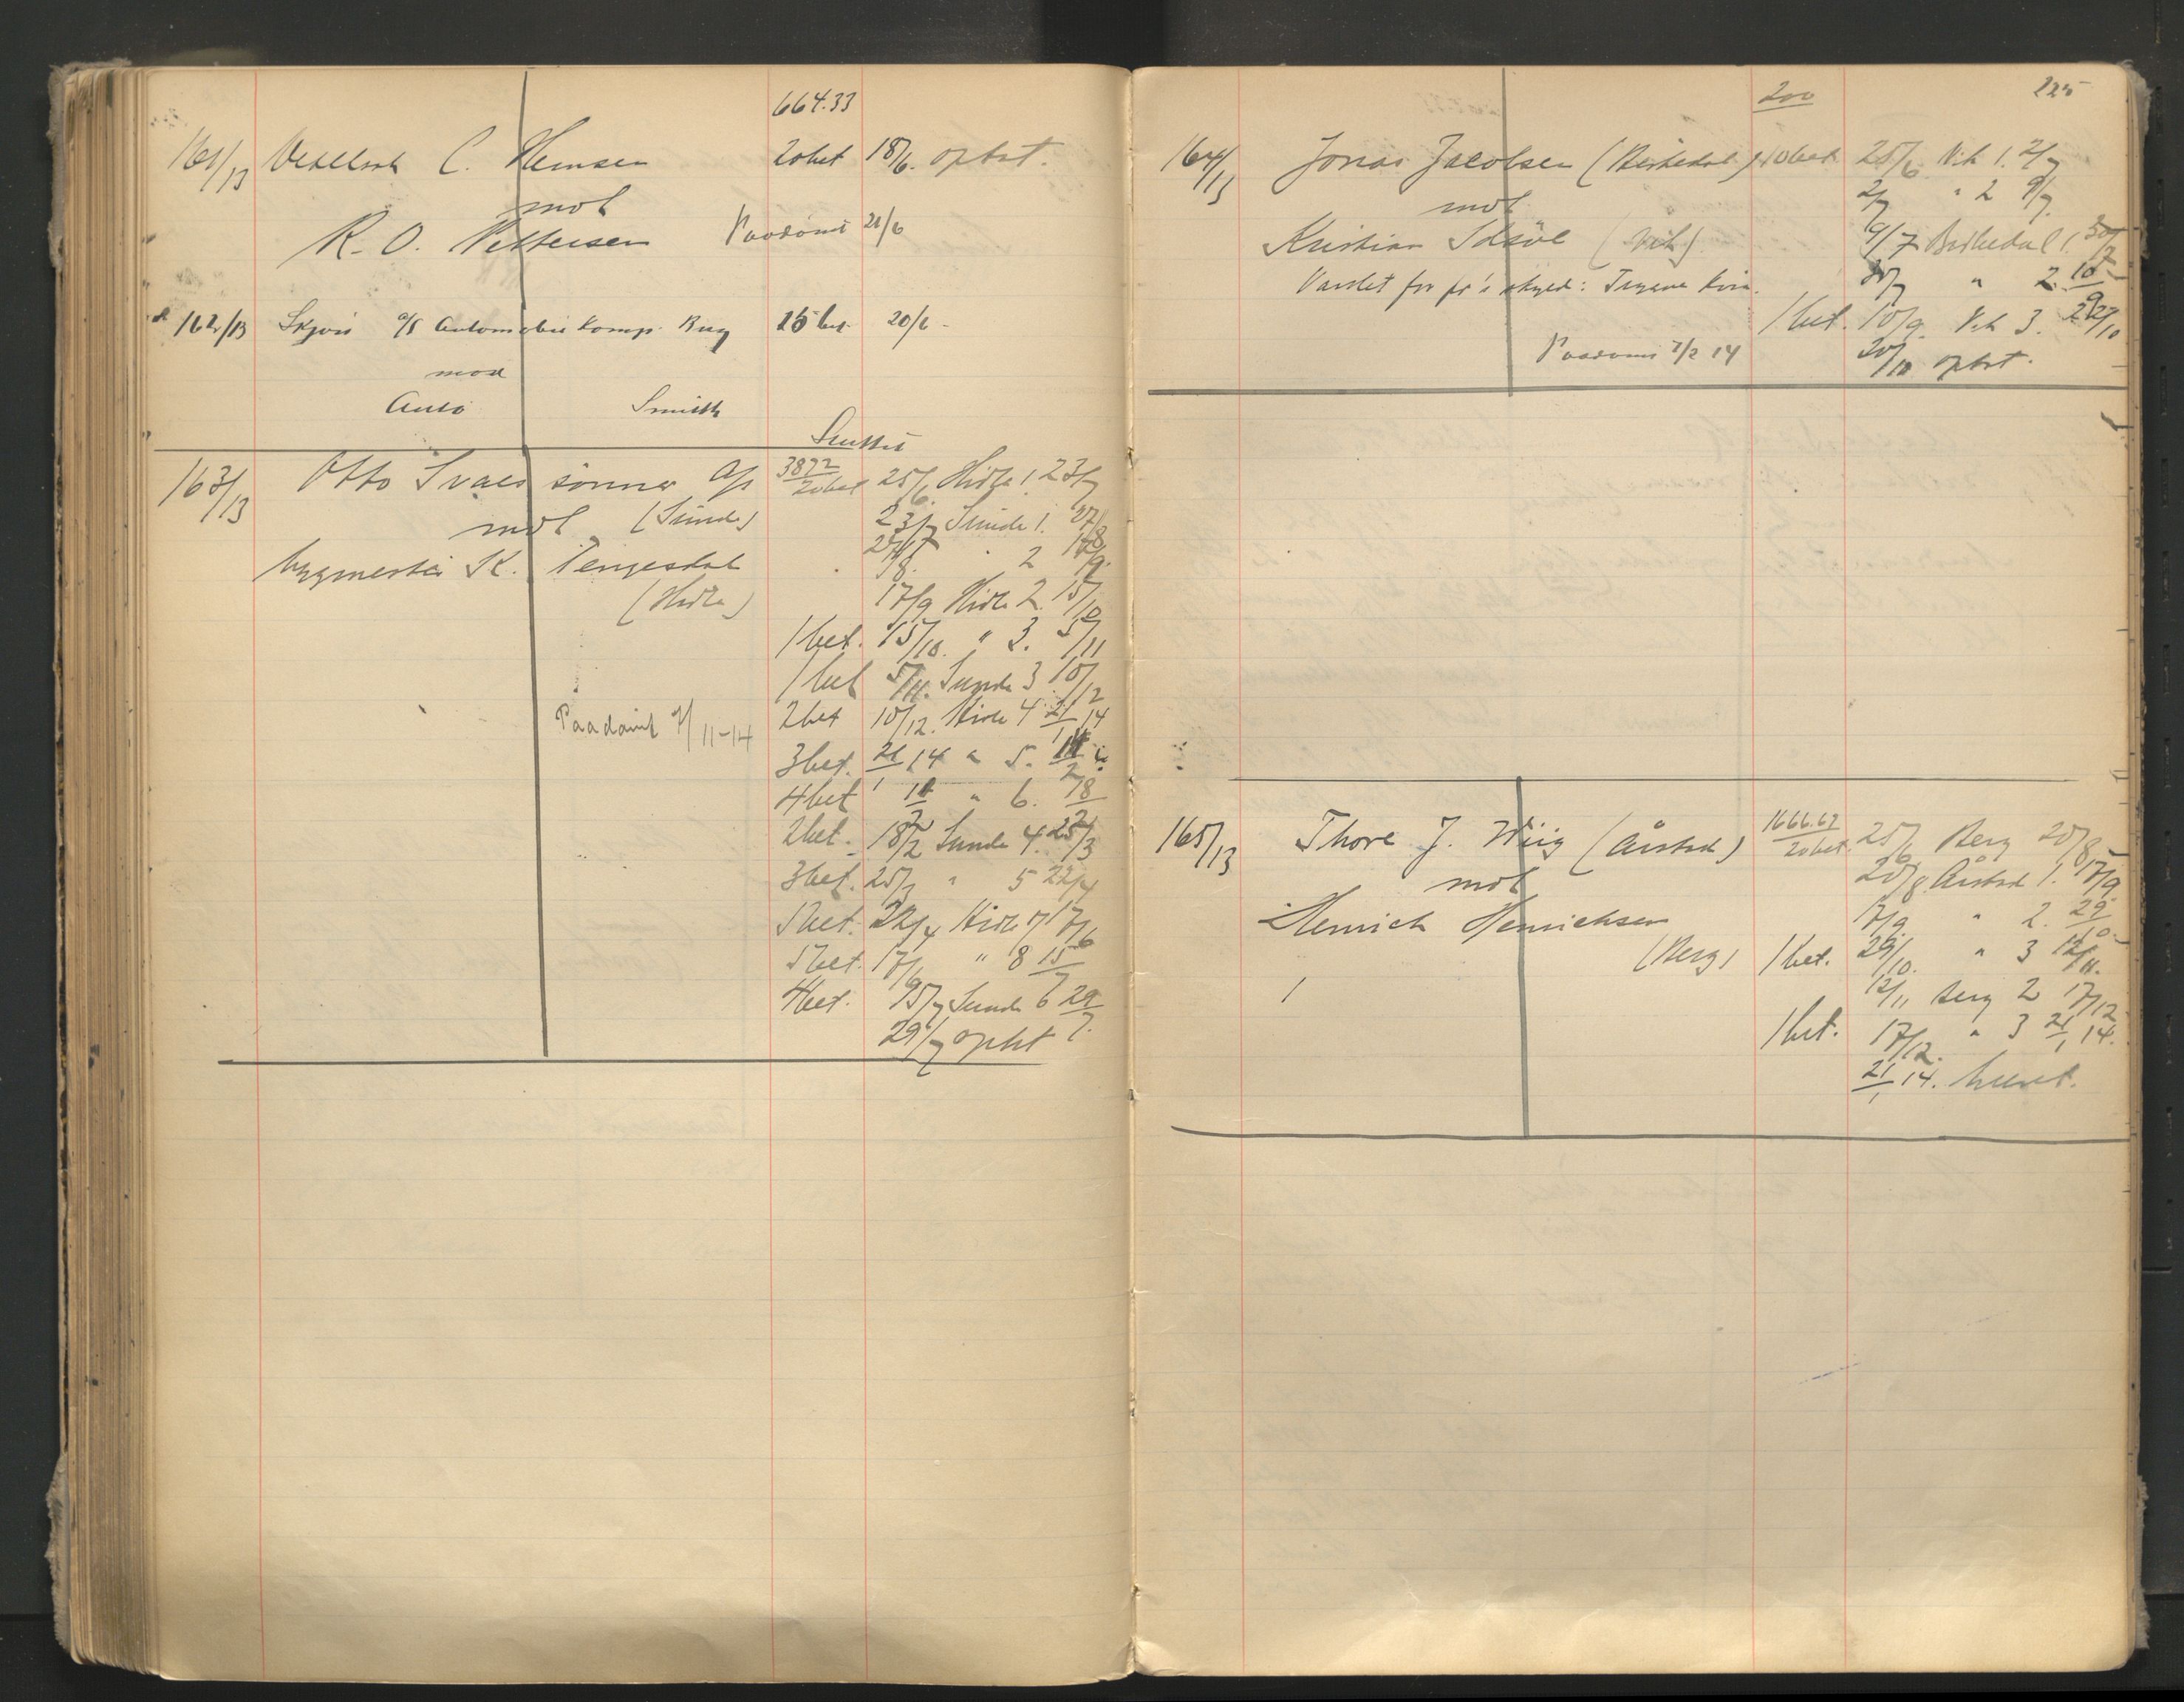 664.33
161/13 Vexelsak C. Hemsen 20bet 18/6. optat.
mot
R. O. Pettersen Paadømt 21/6
162/13 a/s Automobil Komp. 15 bet. 20/6 -
mod
Auto Smith
Sluttet
163/13 Otto Svaes sønner A/s 3872 20bet 25/6 Hidle 1. 23/7
mot (Sunde) 23/7 Sunde 1. 27/8
bygmester K. Tengesdal 27/8. " 2 17/9.
(Hidle) 17/9 Hidle 2. 15/10
1 bet. 15/10. " 3. 5/11
1 bet 5/11. Sunde 3 10/12
Paadømt 7/11-14 2bet 10/12. Hidle 4 21/1 14
3bet. 21/1 14 " 5.
4bet " 6. 18/2
2bet. 18/2 Sunde 4. 25/3
3bet. 25/3 " 5 22/4
5bet. 22/4 Hidle 7 17/6
5bet. 17/6 " 8 15/7
4bet. 15/7 Sunde 6 29/7.
29/7 optat
200 225
164/13 Jonas Jacobsen (Birkedal) 10bet. 25/6 Vik 1. 2/7
mot 2/7 " 2 9/7.
Kristian (Vik) 9/7 Birkedal 1. 30/7
Varslet for skyld: 30/7 " 2. 10/9
1 bet. 10/9. Vik 3.
Paadømt 7/2 14 optat.
165/13 Thore J. Wiig (Årstad) 1666.67 20bet. 25/6 Berg 20/8
mot 20/8 Årstad 1. 17/9
Henrich Henrichsen 17/9. " 2. 29/10.
(Berg) 1 bet. 29/10. " 3 12/11.
12/11 Berg 2 17/12
1 bet. 17/12. " 3 21/1 14.
21/1 14. hævet.